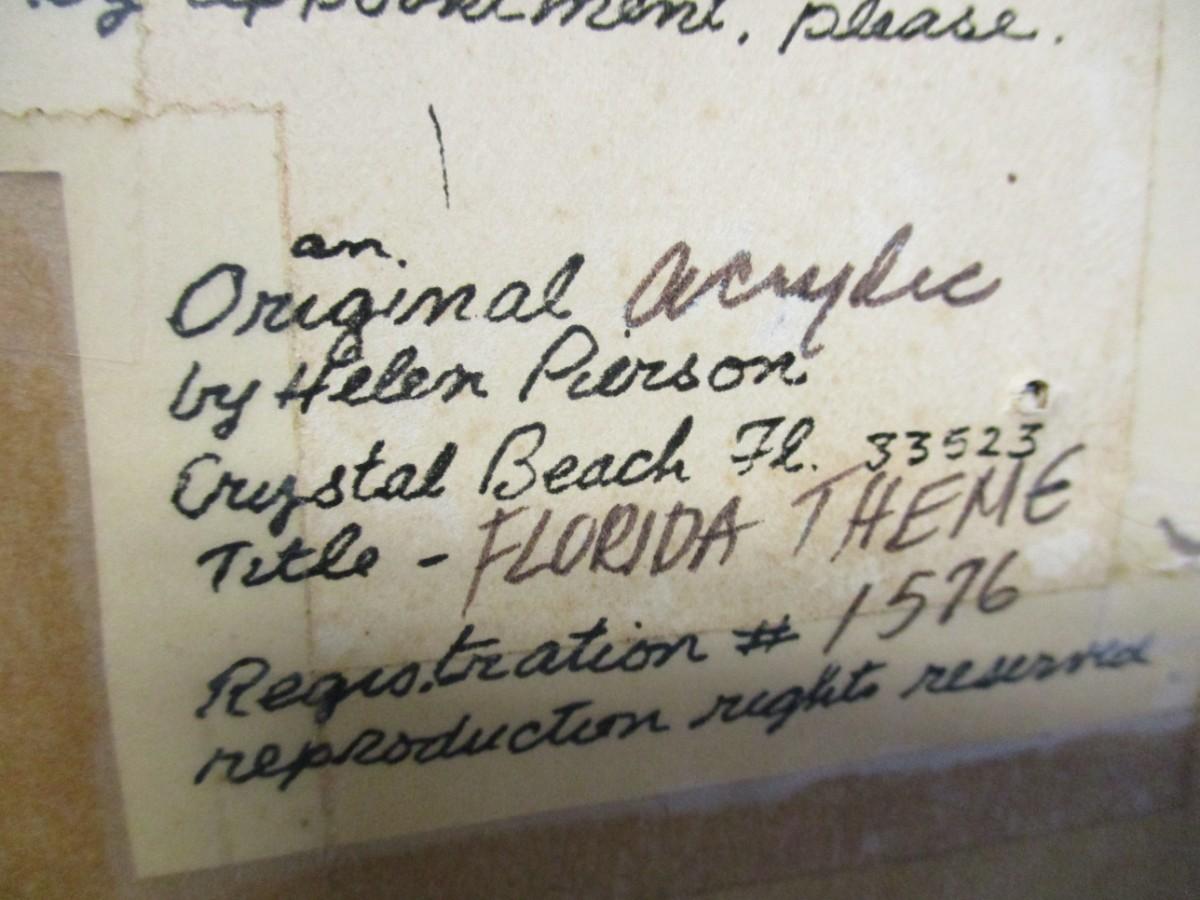 by appointment, please.
an
Original acrylic
by Helen Pierson
Crystal Beach Fl. 33523
Title - FLORIDA THEME
Registration # 1576
reproduction rights reserved